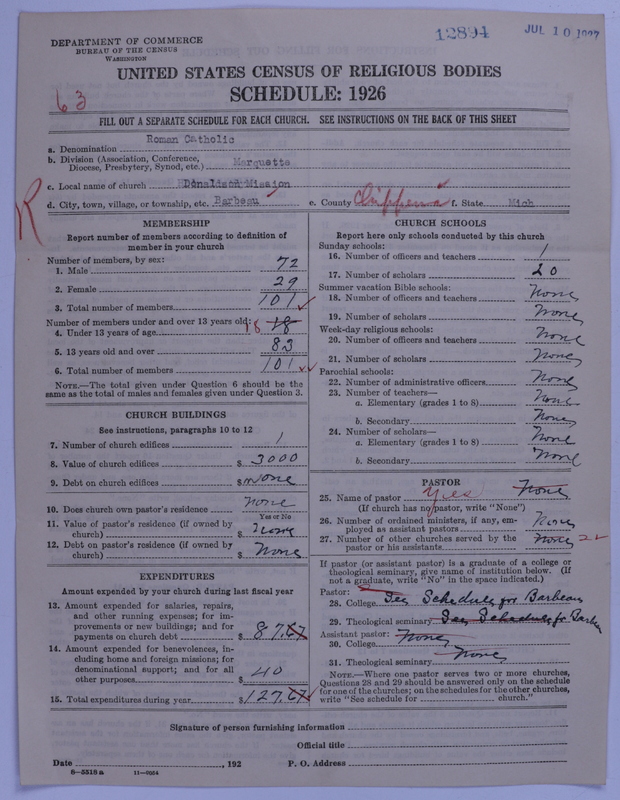 12894
JUL 10 1927
DEPARTMENT OF COMMERCE
BUREAU OF THE CENSUS
WASHINGTON
UNITED STATES CENSUS OF RELIGIOUS BODIES
SCHEDULE: 1926
63
FILL OUT A SEPARATE SCHEDULE FOR EACH CHURCH. SEE INSTRUCTIONS ON THE BACK OF THIS SHEET
a. Denomination Roman Catholic
b. Division (Association, Conference, Diocese, Presbytery, Synod, etc.) Marquette
c. Local name of church Donaldson Mission
d. City, town, village, or township, etc. Barbeau e. County Chippewa f. State Mich
R
MEMBERSHIP
Report number of members according to definition of
member in your church
Number of members, by sex:
1. Male 72
2. Female 29
3. Total number of members 101
Number of members under and over 13 years old:
4. Under 13 years of age 18 18
5. 13 years old and over 83
6. Total number of members 101
NOTE.—The total given under Question 6 should be the
same as the total of males and females given under Question 3.
CHURCH BUILDINGS
See instructions, paragraphs 10 to 12
7. Number of church edifices 1
8. Value of church edifices $ 3000
9. Debt on church edifices $ None
10. Does church own pastor's residence? None
Yes or No
11. Value of pastor's residence (if owned by
church) $ None
12. Debt on pastor's residence (if owned by
church) $ None
EXPENDITURES
Amount expended by your church during last fiscal year
13. Amount expended for salaries, repairs,
and other running expenses; for im-
provements or new buildings; and for
payments on church debt $ 87.67
14. Amount expended for benevolences, in-
cluding home and foreign missions; for
denominational support; and for all
other purposes $ 40
15. Total expenditures during year $ 127.67
CHURCH SCHOOLS
Report here only schools conducted by this church
Sunday schools:
16. Number of officers and teachers 1
17. Number of scholars 20
Summer vacation Bible schools:
18. Number of officers and teachers None
19. Number of scholars None
Week-day religious schools:
20. Number of officers and teachers None
21. Number of scholars None
Parochial schools:
22. Number of administrative officers None
23. Number of teachers—
a. Elementary (grades 1 to 8) None
b. Secondary None
24. Number of scholars—
a. Elementary (grades 1 to 8) None
b. Secondary None
PASTOR
25. Name of pastor Yes None
(If church has no pastor, write "None")
26. Number of ordained ministers, if any, em-
ployed as assistant pastors None
27. Number of other churches served by the
pastor or his assistants None 2
If pastor (or assistant pastor) is a graduate of a college or
theological seminary, give name of institution below. (If
not a graduate, write "No" in the space indicated.)
Pastor:
28. College See Schedule for Barbeau
29. Theological seminary See Schedule for Barbeau
Assistant pastor:
30. College None
31. Theological seminary None
NOTE.—Where one pastor serves two or more churches,
Questions 28 and 29 should be answered only on the schedule
for one of the churches; on the schedules for the other churches,
write "See schedule for ______ church."
Signature of person furnishing information
Official title
Date , 192 P. O. Address
8—5518a 11—9054